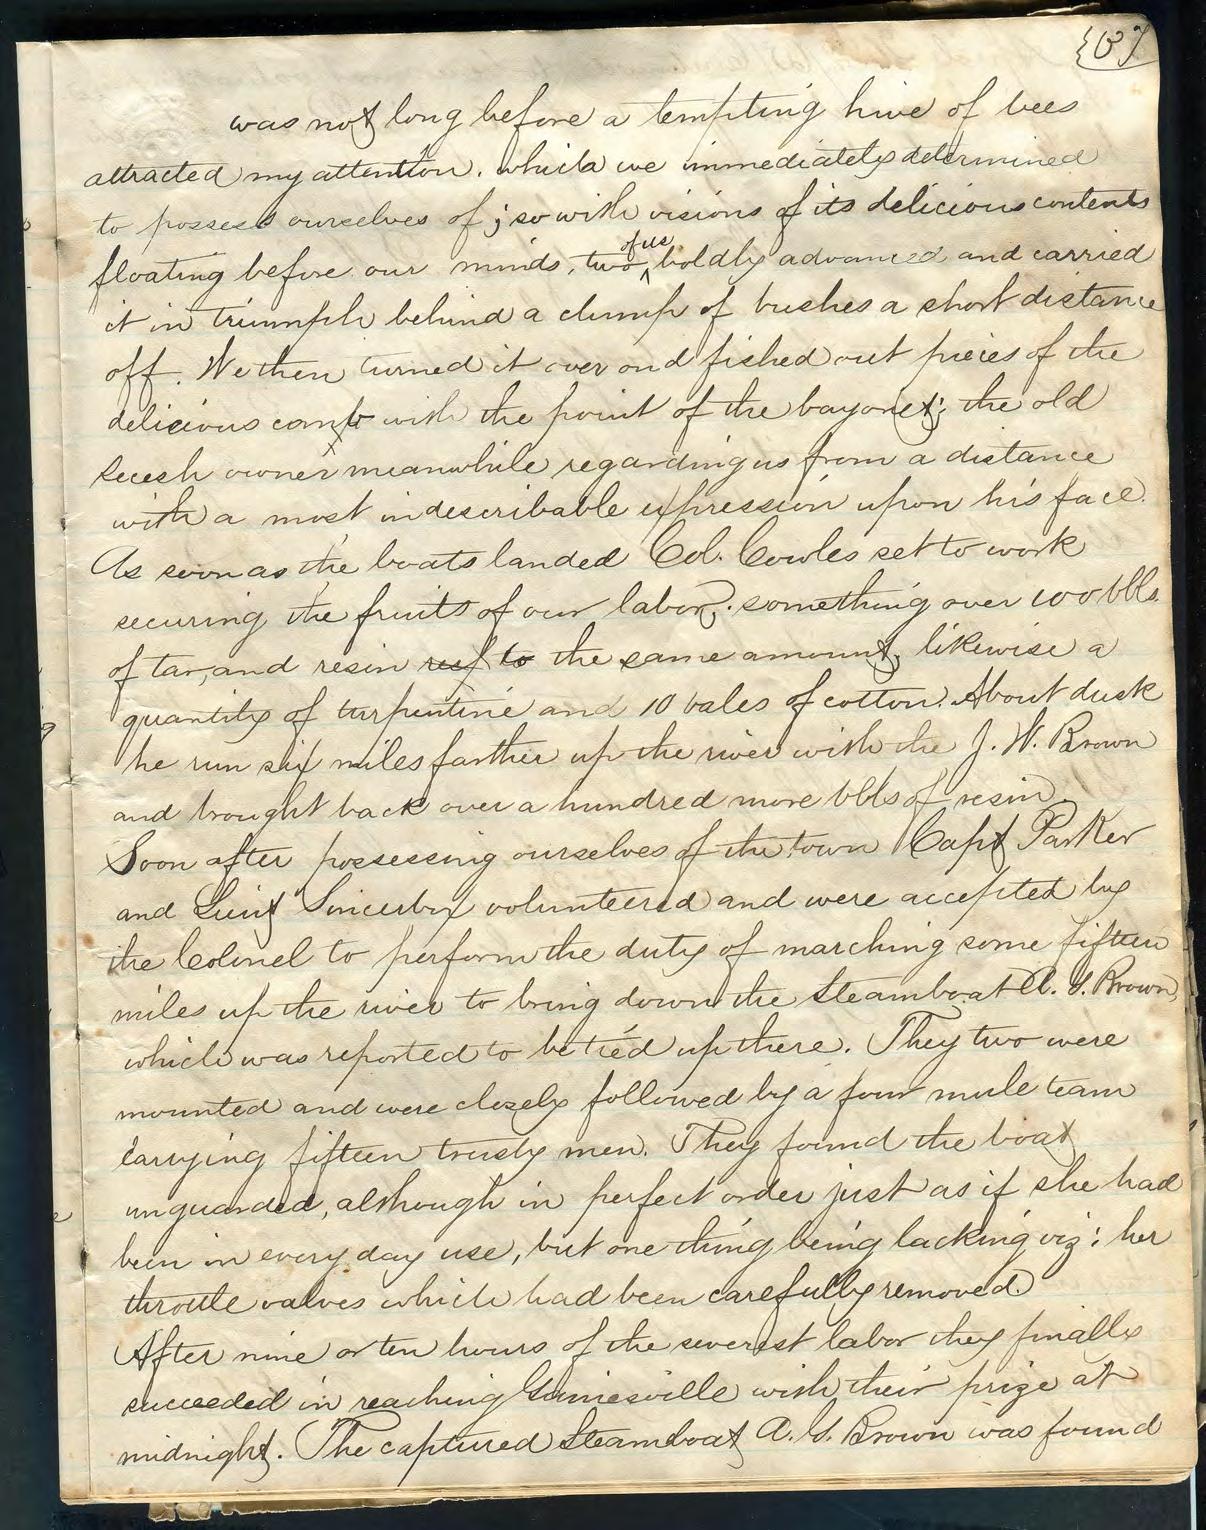 {67
was not long before a tempting hive of bees
attracted my attention, which we immediately determined
to possess ourselves of; so with visions of its delicious contents
floating before our minds, two of us boldly advanced and carried
it in triumph behind a clump of bushes a short distance
off. We then turned it over and fished out pieces of the
delicious comb with the point of the bayonet; the old
secesh owner meanwhile regarding us from a distance
with a most indescribable expression upon his face.
As soon as the boats landed Col. Cowles set to work
securing the fruits of our labor, something over 100 bbls.
of tar, and resin to the same amount, likewise a
quantity of turpentine and 10 bales of cotton. About dusk
he run six miles farther up the river with the J. W. Brown
and brought back over a hundred more bbls of resin.
Soon after possessing ourselves of the town Capt Parker
and Lieut Sincerby volunteered and were accepted by
the Colonel to perform the duty of marching some fifteen
miles up the river to bring down the Steamboat A. G. Brown,
which was reported to be tied up there. They two were
mounted and were closely followed by a four mule team
carrying fifteen trusty men. They found the boat
unguarded, although in perfect order just as if she had
been in every day use, but one thing being lacking viz: her
throttle valves which had been carefully removed.
After nine or ten hours of the severest labor they finally
succeeded in reaching Gainesville with their prize at
midnight. The captured Steamboat A. G. Brown was found